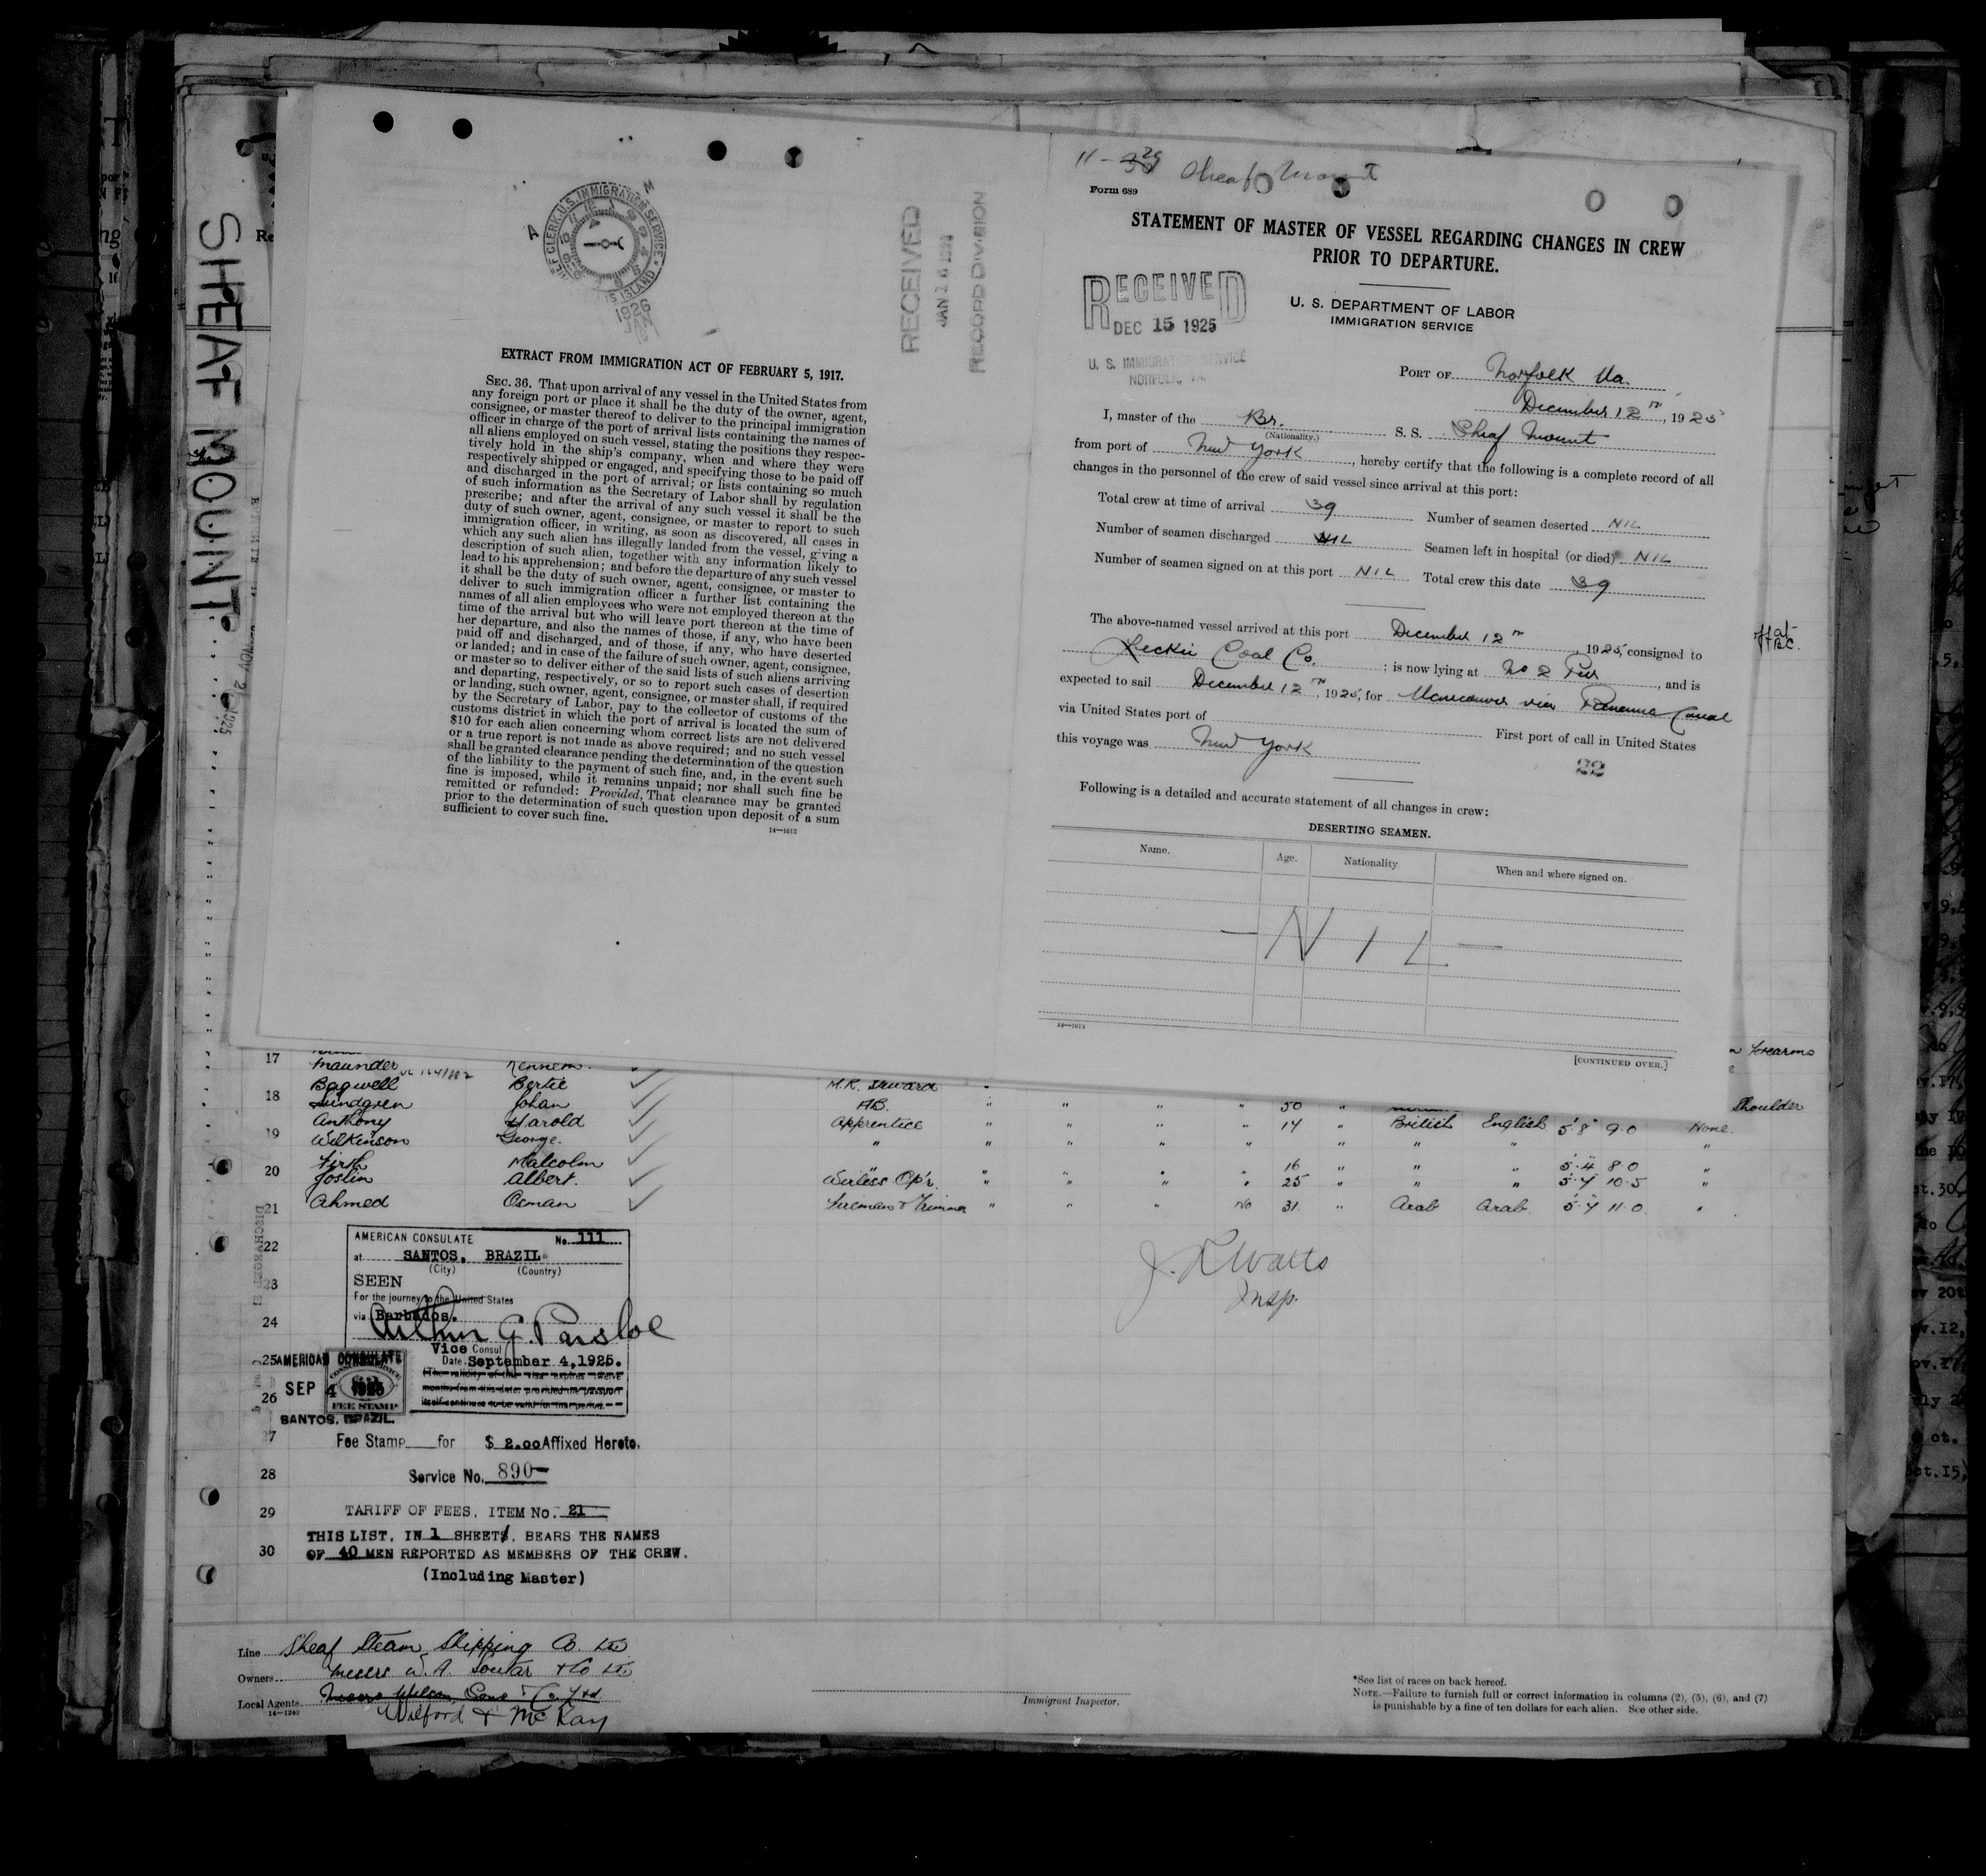 SHEAF MOUNT
CHIEF CLERK U.S. IMMIGRATION SERVICE
ELLIS ISLAND
1926
RECEIVED
JAN 1 6 192
RECORD DIVISION
EXTRACT FROM IMMIGRATION ACT OF FEBRUARY 5, 1917.
SEC. 36. That upon arrival of any vessel in the United States from
any foreign port or place it shall be the duty of the owner, agent,
consignee, or master thereof to deliver to the principal immigration
officer in charge of the port of arrival lists containing the names of
all aliens employed on such vessel, stating the positions they respec-
tively hold in the ship's company, when and where they were
respectively shipped or engaged, and specifying those to be paid off
and discharged in the port of arrival; or lists containing so much
of such information as the Secretary of Labor shall by regulation
prescribe; and after the arrival of any such vessel it shall be the
duty of such owner, agent, consignee, or master to report to such
immigration officer, in writing, as soon as discovered, all cases in
which any such alien has illegally landed from the vessel, giving a
description of such alien, together with any information likely to
lead to his apprehension; and before the departure of any such vessel
it shall be the duty of such owner, agent, consignee, or master to
deliver to such immigration officer a further list containing the
names of all alien employees who were not employed thereon at the
time of the arrival but who will leave port thereon at the time of
her departure, and also the names of those, if any, who have been
paid off and discharged, and of those, if any, who have deserted
or landed; and in case of the failure of such owner, agent, consignee,
or master so to deliver either of the said lists of such aliens arriving
and departing, respectively, or so to report such cases of desertion
or landing, such owner, agent, consignee, or master shall, if required
by the Secretary of Labor, pay to the collector of customs of the
customs district in which the port of arrival is located the sum of
$10 for each alien concerning whom correct lists are not delivered
or a true report is not made as above required; and no such vessel
shall be granted clearance pending the determination of the question
of the liability to the payment of such fine, and, in the event such
fine is imposed, while it remains unpaid; nor shall such fine be
remitted or refunded: Provided, That clearance may be granted
prior to the determination of such question upon deposit of a sum
sufficient to cover such fine.
14—1613
Sheaf Mount
Form 689
STATEMENT OF MASTER OF VESSEL REGARDING CHANGES IN CREW
PRIOR TO DEPARTURE.
RECEIVED
DEC 15 1925
U. S. IMMIGRATION SERVICE
NORFOLK, VA.
U. S. DEPARTMENT OF LABOR
IMMIGRATION SERVICE
PORT OF Norfolk Va.
December 12th, 1925
I, master of the Br. S. S. Sheaf Mount
(Nationality.)
from port of New York, hereby certify that the following is a complete record of all
changes in the personnel of the crew of said vessel since arrival at this port:
Total crew at time of arrival 39 Number of seamen deserted NIL
Number of seamen discharged NIL Seamen left in hospital (or died) NIL
Number of seamen signed on at this port NIL Total crew this date 39
The above-named vessel arrived at this port December 12th, 1925, consigned to
Leckie Coal Co. ; is now lying at No 2 Pier, and is
expected to sail December 12th, 1925, for Vancouver via Panama Canal
via United States port of First port of call in United States
this voyage was New York
22
Following is a detailed and accurate statement of all changes in crew:
DESERTING SEAMEN.
Name. Age. Nationality When and where signed on.
— NIL —
14—1613
[CONTINUED OVER.]
forearms
17 Maunder Kenneth
Bagwell Bertie M.R. Steward
18 Lundgren Johan A.B. " " " " 50 " Shoulder
Anthony Harold Apprentice " " " " 17 " British English 5'8" 9.0 None
19 Wilkinson George. " " " " " " " " "
Firth Malcolm 16 " " " 5'4" 8.0 "
20 Joslin Albert. Wireless Op'r. " " " " 25 " " " 5'7" 10.5 "
21 Ahmed Osman Fireman & Trimmer " " " No 31 " Arab Arab 5'7" 11.0 "
J. R. Watts
Insp.
22
23
24
25
26
27
28
29
30
AMERICAN CONSULATE No. 111
at SANTOS, BRAZIL
(City) (Country)
SEEN
For the journey to the United States
via Barbados.
Arthur G. Parsloe
Vice Consul
Date September 4, 1925.
(The validity of this visa expires twelve
months from this date, provided the passport
itself continues to be valid for that period.
AMERICAN CONSULATE
SEP 4 1925
FEE STAMP
SANTOS, BRAZIL.
Fee Stamp for $ 2.00 Affixed Hereto.
Service No. 890—
TARIFF OF FEES, ITEM No. 21
THIS LIST, IN 1 SHEETS, BEARS THE NAMES
OF 40 MEN REPORTED AS MEMBERS OF THE CREW.
(Including Master)
Line Sheaf Steam Shipping Co. Ltd
Owners Messrs W. A. Souter & Co Ltd.
Local Agents Messrs Wilson, Sons & Co. Ltd.
14—1240
Wilford & McKay
Immigrant Inspector.
*See list of races on back hereof.
NOTE.—Failure to furnish full or correct information in columns (2), (5), (6), and (7)
is punishable by a fine of ten dollars for each alien. See other side.